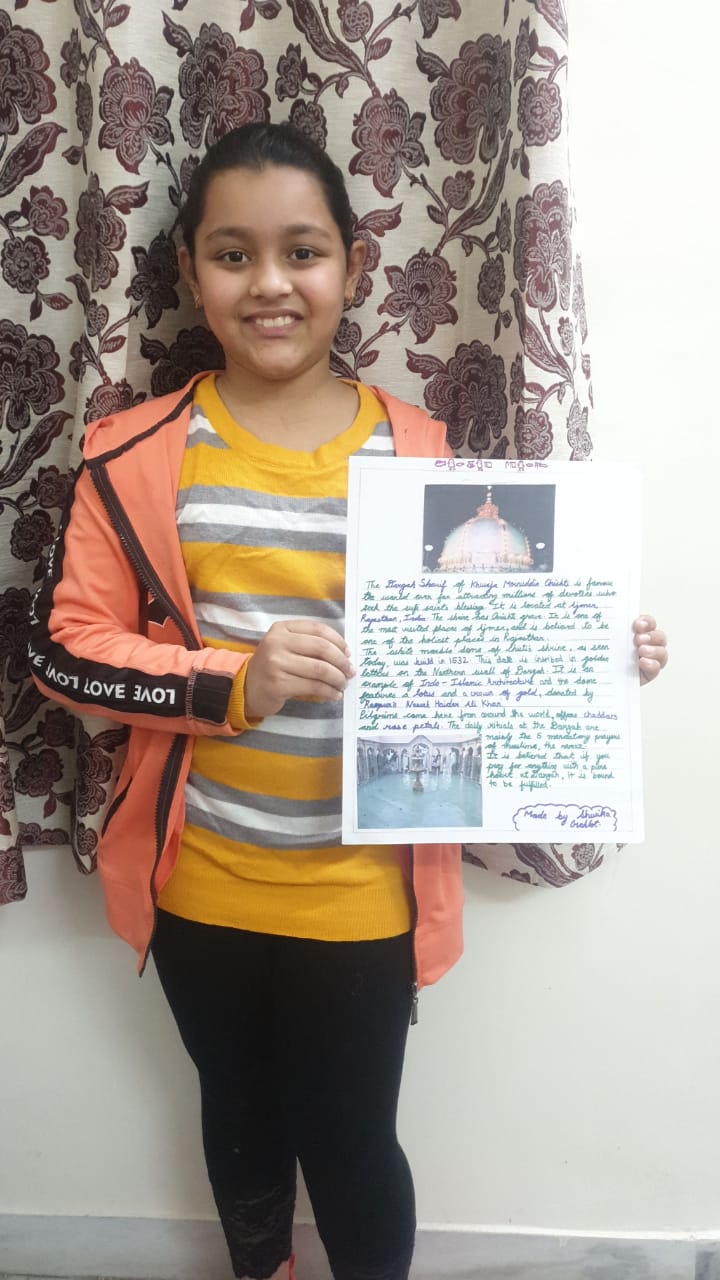 The Dargah Sharif of Khwaja Moinuddin Chishti is famous
the world over for attracting millions of devotees who
seek the sufi saints blessing. It is located at Ajmer,
Rajasthan, India. The shrine has Chisti grave. It is one of
the most visited places of Ajmer, and is believed to be
one of the holiest places in Rajasthan.
The white marble dome of Chisti's shrine, as seen
today, was build in 1532. This date is inscribed in golden
letters on the Northern wall of Dargah. It is an
example of Indo-Islamic Architecture and the dome
features a lotus and a crown of gold, donated by
Rampur's Nawab Haider Ali Khan.
Piligrims come here from around the world, offers chaddars
and rose petals. The daily rituals at the Dargah are
mainly the 5 mandatory prayers
of muslims, the namaz.
It is believed that if you
pray for anything with a pure
heart at Dargah, it is bound
to be fulfilled.
Made by
LOVE LOVE LOVE